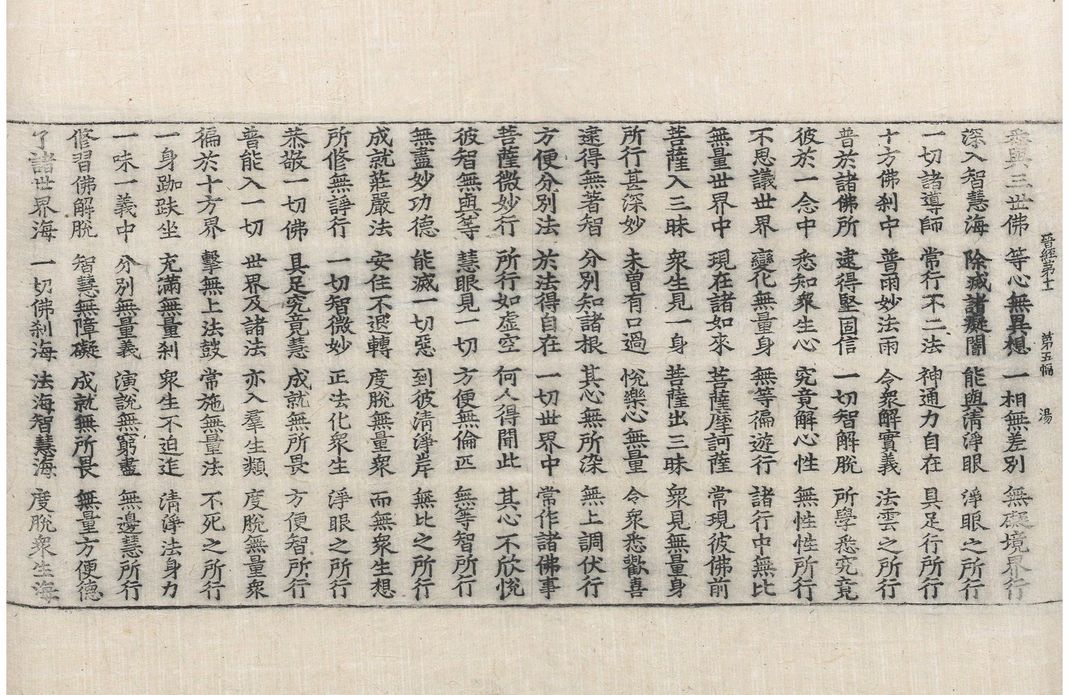 晉經第十 第五幅 湯
悉與三世佛 等心無異想 一相無差別 無礙境界行
深入智慧海 除滅諸癡闇 能與清淨眼 淨眼之所行
一切諸導師 常行不二法 神通力自在 具足行所行
十方佛刹中 普雨妙法雨 令衆解實義 法雲之所行
普於諸佛所 逮得堅固信 一切智解脫 所學悉究竟
彼於一念中 悉知衆生心 究竟解心性 無性性所行
不思議世界 變化無量身 無等徧遊行 諸行中無比
無量世界中 現在諸如來 菩薩摩訶薩 常現彼佛前
菩薩入三昧 衆生見一身 菩薩出三昧 衆見無量身
所行甚深妙 未曾有口過 悅樂心無量 令衆悉歡喜
逮得無著智 分別知諸根 其心無所染 無上調伏行
方便分別法 於法得自在 一切世界中 常作諸佛事
菩薩微妙行 所行如虛空 何人得聞此 其心不欣悅
彼智無與等 慧眼見一切 方便無倫匹 無等智所行
無盡妙功德 能滅一切惡 到彼清淨岸 無比之所行
成就莊嚴法 安住不退轉 度脫無量衆 而無衆生想
所修無諍行 一切智微妙 正法化衆生 淨眼之所行
恭敬一切佛 具足究竟慧 成就無所畏 方便智所行
普能入一切 世界及諸法 亦入羣生類 度脫無量衆
徧於十方界 擊無上法鼓 常施無量法 不死之所行
一身跏趺坐 充滿無量刹 衆生不迫迮 清淨法身力
一味一義中 分別無量義 演說無窮盡 無邊慧所行
修習佛解脫 智慧無障礙 成就無所畏 無量方便德
了諸世界海 一切佛刹海 法海智慧海 度脫衆生海